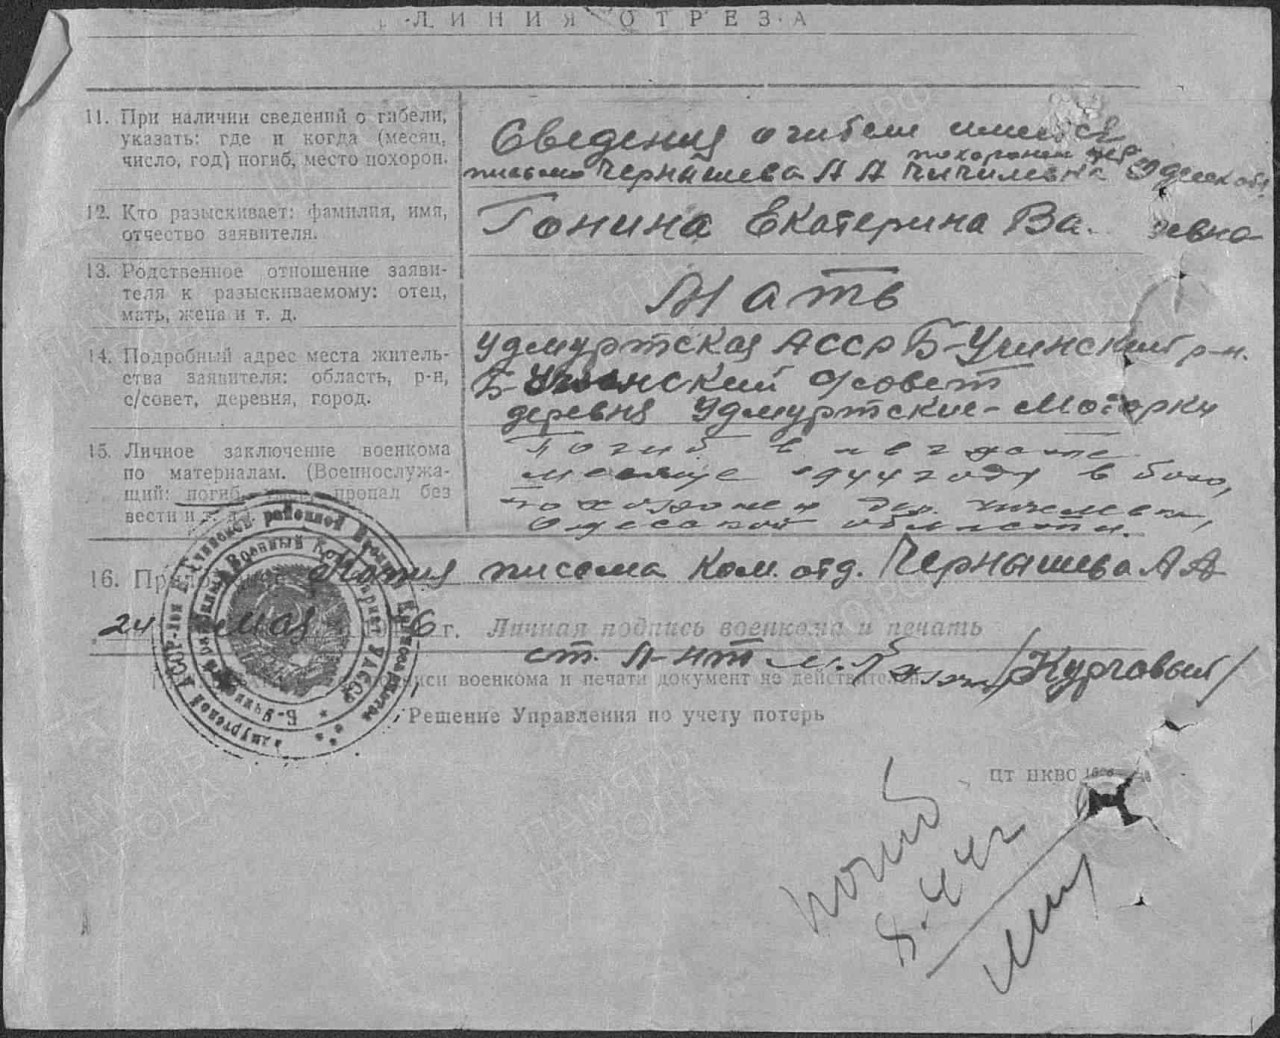 ЛИНИЯ ОТРЕЗА
11. При наличии сведений о гибели,
указать: где и когда (месяц,
число, год) погиб, место похорон.
Сведения о гибели имеется
похоронен дер.
письмо Чернышева А А Чичилевка Одесск обл
12. Кто разыскивает: фамилия, имя,
отчество заявителя.
Гонина Екатерина Ва евна
13. Родственное отношение заяви-
теля к разыскиваемому: отец,
мать, жена и т. д.
Мать
14. Подробный адрес места житель-
ства заявителя: область, р-н,
с/совет, деревня, город.
Удмуртская АССР Б-Учинский р-н.
Б-Учинский совет
деревня Удмуртские-
15. Личное заключение военкома
по материалам. (Военнослужа-
щий: погиб, пропал без
вести и т. д.)
Погиб в августе
месяце 1944 году в бою,
похоронен дер.
Одесской области.
16. Копия письма Ком. отд. Чернышева А А
24 Мая 6 г. Личная подпись военкома и печать
ст. л-нт /Курговый/
подписи военкома и печати документ не действителен
Решение Управления по учету потерь
ЦТ НКВС
погиб
8.44г